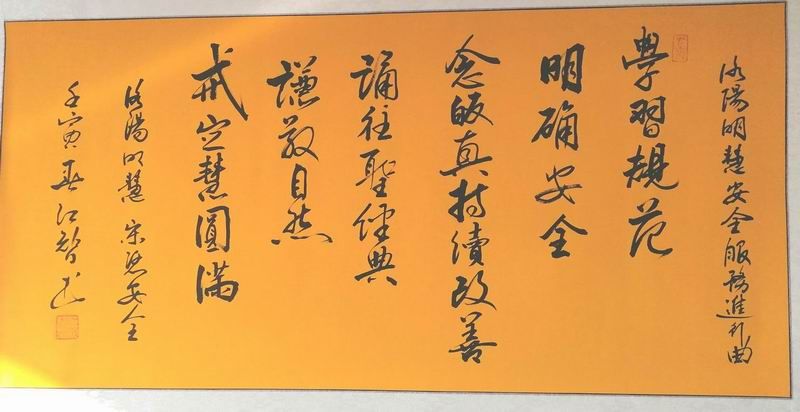 洛陽明慧安全服務進行曲
學習規范
明确安全
念皈真持續改善
誦往聖經典
謙敬自然
戒定慧圓滿
洛陽明慧 宗思安全
壬寅春江智书